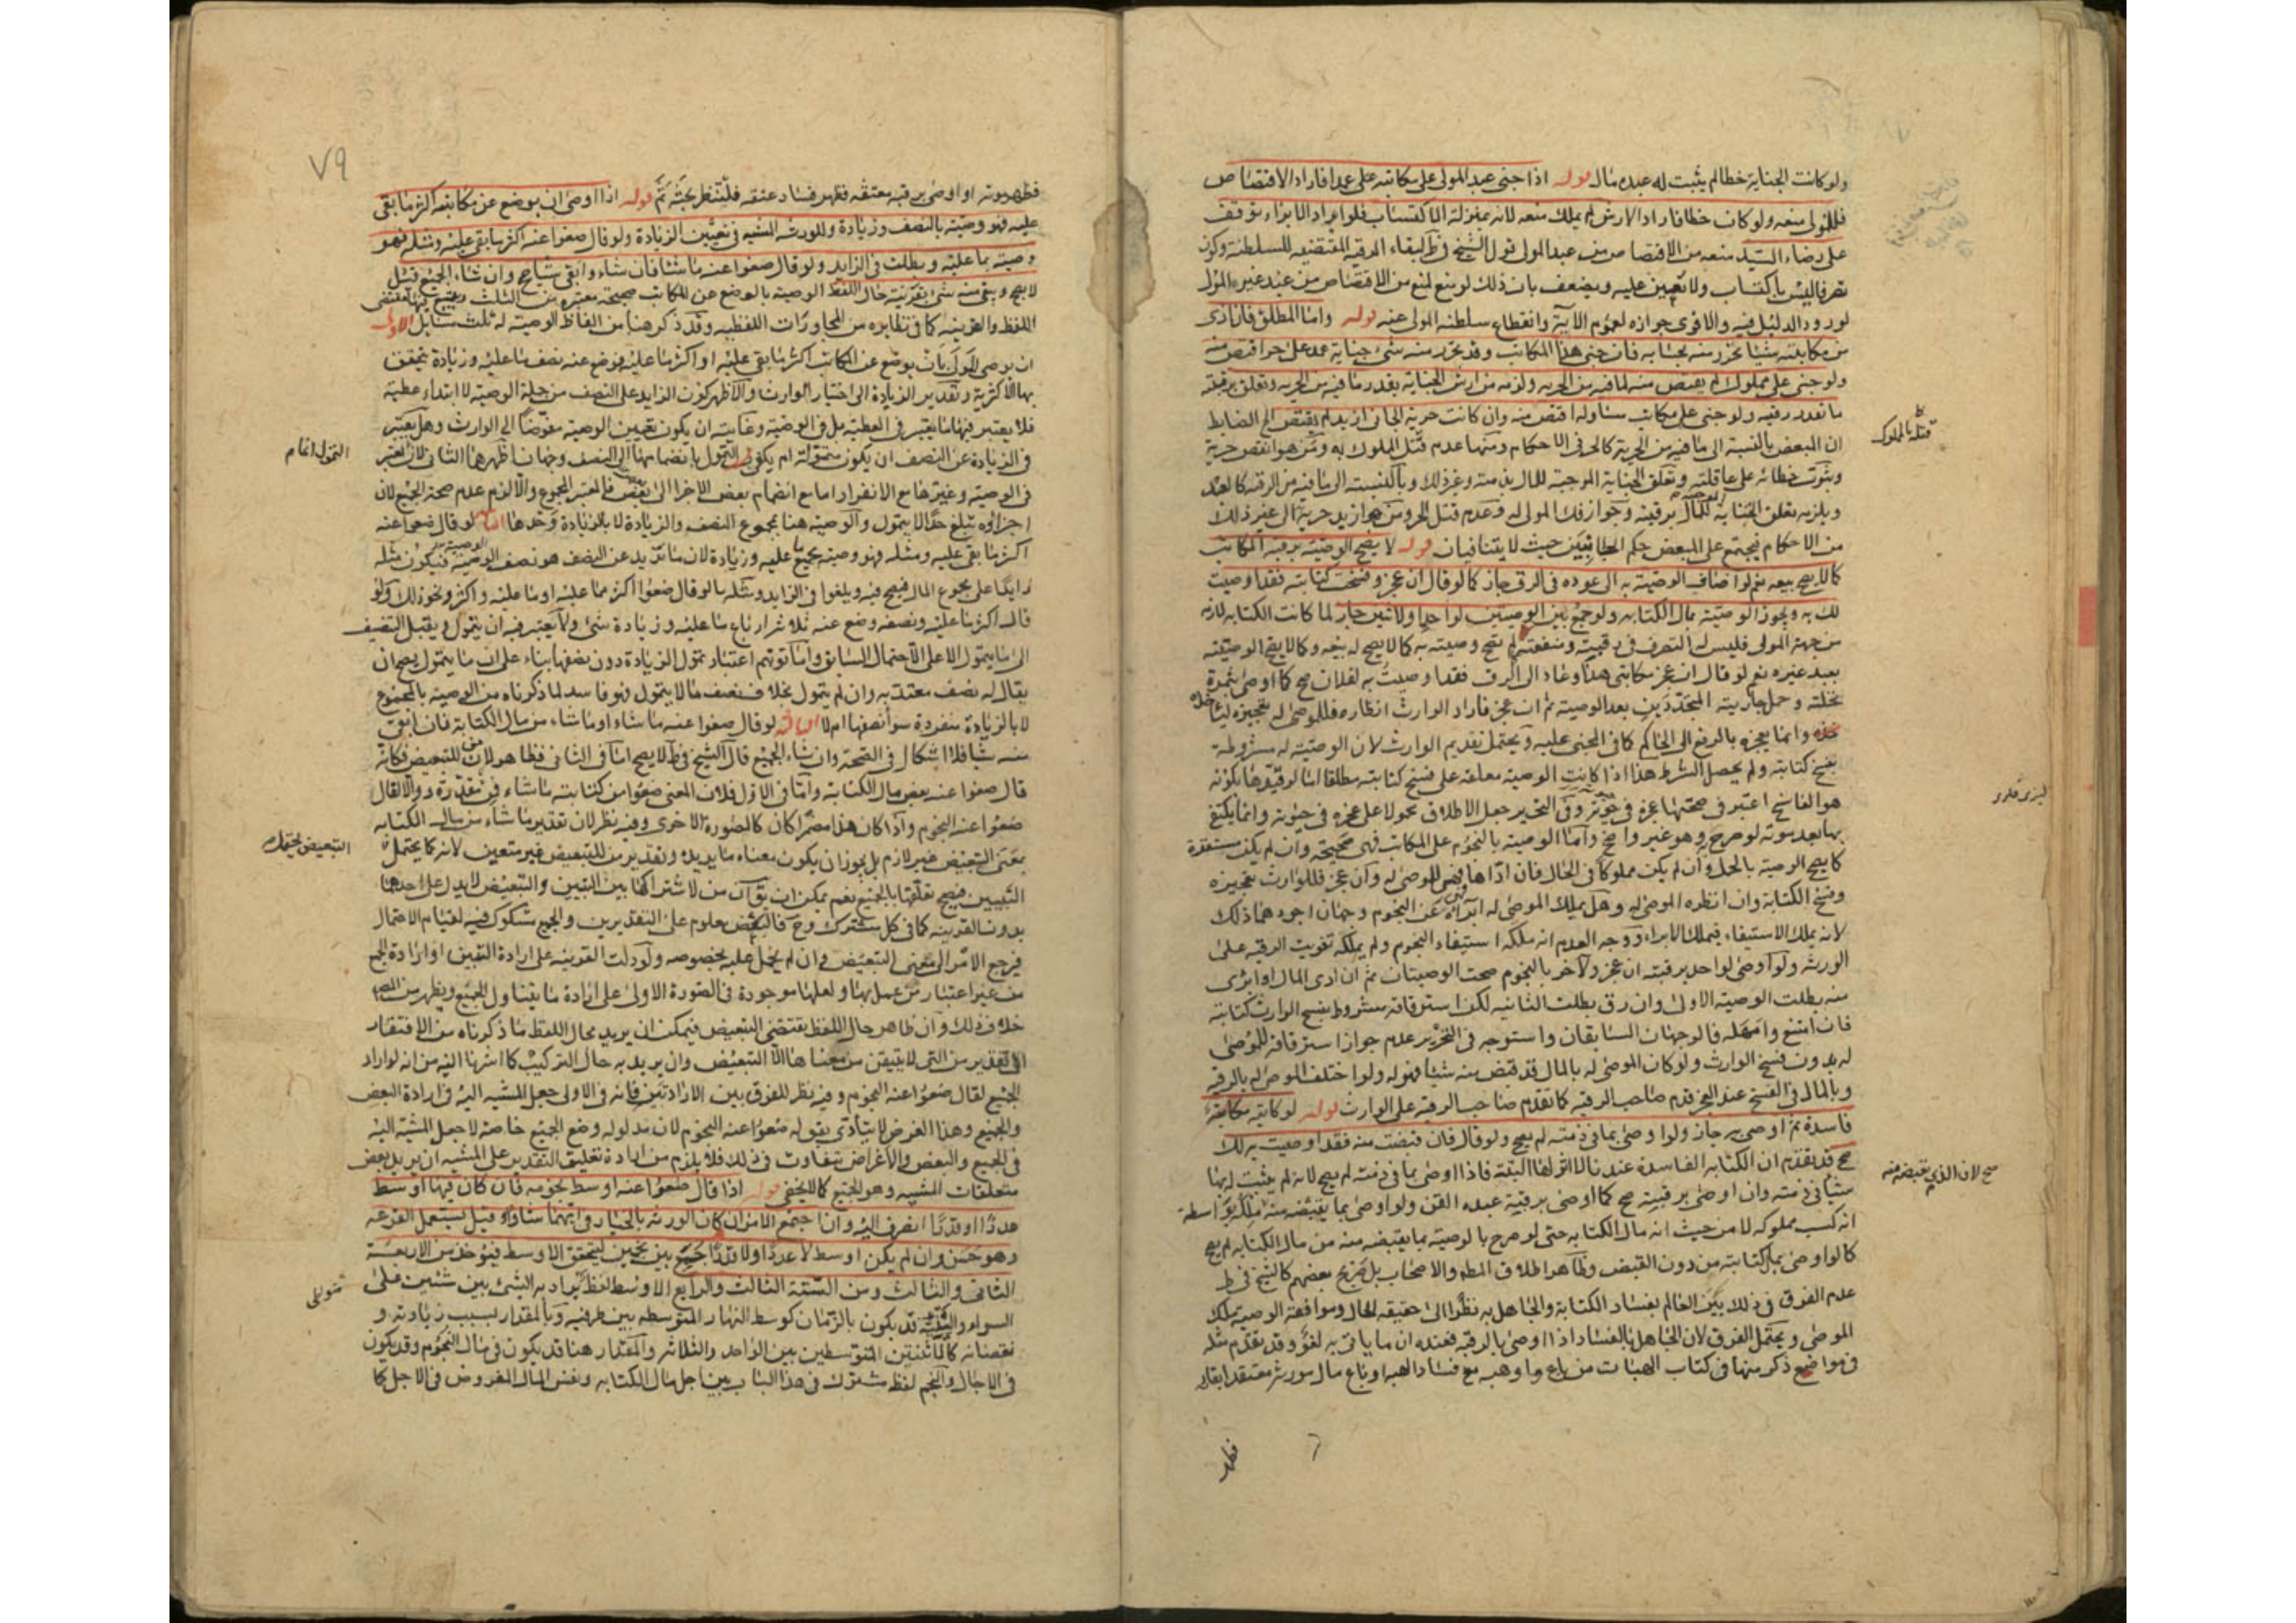 ولو كانت الجناية خطا لم يثبت له عبده مال قوله اذا جنى عبد المولى على مكاتبه عمدا فاراد الاقتصاص
فللمولى منعه ولو كان خطا فاراد الارش لم يملك منعه لانه بمنزلة الاكتساب فلو اراد الابراء توقف
على رضاء السيد منعه من الاقتصاص من عبد المولى قول الشيخ في ط لبقاء الرقية المقتضية للسلطنة وكون
تصرفا ليس باكتساب ولا تعيين عليه ويضعف بان ذلك لو منع لمنع من الاقتصاص من عبد غير المولى
لورود الدليل فيه والاقوى جوازه لعموم الآية وانقطاع سلطنة المولى عنه قوله واما المطلق فاذا ادى
من مكاتبته شيئا تحرر منه بحسابه فان جنى هذا المكاتب وقد تحرر منه شئ جناية عمد على حر اقتص منه
ولو جنى على مملوك لم يقتص منه لما فيه من الحرية ولزمه من ارش الجناية بقدر ما فيه من الحرية وتعلق برقبته
ما تعدد رقيه ولو جنى على مكاتب ساواه اقتص منه وان كانت حرية الجاني ازيد لم يقتص الخ الضابط
ان المبعض بالنسبة الى ما فيه من الحرية كالحر في الاحكام ومنها عدم قتل المملوك به ومن هو انقص حرية
وثبوت خطائه على عاقلته وتعلق الجناية الموجبة للمال بذمته وغير ذلك وبالنسبة الى ما فيه من الرقية كالعبد
ويلزمه تعلق الجناية للمال برقبته وجواز فك المولى له وعدم قتل الحر ومن هو ازيد حرية الى غير ذلك
من الاحكام فيجتمع على المبعض حكم الجانبين حيث لا يتنافيان قوله لا يصح الوصية برقبة المكاتب
كما لا يصح بيعه نعم لو اضاف الوصية به الى عوده في الرق جاز كما لو قال ان عجز وفسخت كتابته فقد اوصيت
لك به ويجوز الوصية بمال الكتابة ولو جمع بين الوصيتين لواحد او لاثنين جاز لما كانت الكتابة لازمة
من جهة المولى فليس له التصرف في رقبته ومنفعته لم تصح وصيته به كما لا يصح له بيعه وكما لا يصح الوصية
بعبد غيره نعم لو قال ان عجز مكاتبي هذا وعاد الى الرق فقد اوصيت به لفلان صح كما لو اوصى بثمرة
نخلته وحمل جاريته المتجددين بعد الوصية ثم ان عجز فاراد الوارث انظاره فللموصى له تعجيزه لياخذه
وانما يعجزه بالرفع الى الحاكم كما في المجنى عليه ويحتمل تقديم الوارث لان الوصية له مشروطة
بفسخ كتابته ولم يحصل الشرط هذا اذا كانت الوصية معلقة على فسخ كتابته مطلقا اما لو قيدها بكونه
هو الفاسخ اعتبر في صحتها عجزه في حيوته وفي التحرير جعل الاطلاق محمولا على عجزه في حيوته وانما يكتفى
بها بعد موته لو صرح به وهو غير واضح واما الوصية بالنجوم على المكاتب فهي صحيحة وان لم يكن مستقرة
كما يصح الوصية بالحمل وان لم يكن مملوكا في الحال فان اداها فهي للموصى له وان عجز فللوارث تعجيزه
وفسخ الكتابة وان انظره الموصى له وهل يملك الموصى له ابراءه عن النجوم وجهان اجودهما ذلك
لانه يملك الاستيفاء فيملك الابراء ووجه العدم انه ملكه استيفاء النجوم ولم يملكه تفويت الرقبة على
الورثة ولو اوصى لواحد برقبته ان عجز ولآخر بالنجوم صحت الوصيتان ثم ان ادى المال او ابرى
منه بطلت الوصية الاولى وان رق بطلت الثانية لكن استرقاقه مشروط بفسخ الوارث كتابته
فان امتنع وامهله فالوجهان السابقان واستوجه في التحرير عدم جواز استرقاقه للموصى
له بدون فسخ الوارث ولو كان الموصى له بالمال قد قبض منه شيئا فهو له ولو اختلف الموصى له بالرقبة
وبالمال في الفسخ عند العجز قدم صاحب الرقبة كما تقدم صاحب الرقبة على الوارث قوله لو كاتبه مكاتبة
فاسدة ثم اوصى به جاز ولو اوصى بما في ذمته لم يصح ولو قال فان قبضت منه فقد اوصيت به لك
صح قد تقدم ان الكتابة الفاسدة عندنا لا اثر لها البتة فاذا اوصى بما في ذمته لم يصح لانه لم يثبت له بها
شيئا في ذمته وان اوصى برقبته صح كما لو اوصى برقبة عبده القن ولو اوصى بما يقبضه منه ملكه بواسطة
انه كسب مملوكه لا من حيث انه مال الكتابة حتى لو صرح بالوصية بما يقبضه منه من مال الكتابة لم يصح
كما لو اوصى بمال كتابته من دون القبض وظاهر اطلاق المصنف والاصحاب بل صريح بعضهم كالشيخ في ط
عدم الفرق في ذلك بين العالم بفساد الكتابة والجاهل به نظرا الى حقيقة الحال وموافقة الوصية ملك
الموصى ويحتمل الفرق لان الجاهل بالفساد اذا اوصى بالرقبة فعنده ان ما ياتي به لغو وقد تقدم مثله
في مواضع ذكر منها في كتاب الهبات من باع ما وهبه مع فساد الهبة او باع مال مورثه معتقدا بقاءه
فظهر
قتله بالمملوك
صح لان الذي يقبضه منه
٧٩
فظهر موته او اوصى برقبة معتقه فظهر فساد عتقه فلتنظر بحثه ثم قوله اذا اوصى ان يوضع عن مكاتبه اكثر ما بقى
عليه فهو وصية بالنصف وزيادة وللورثة المشية في تعيين الزيادة ولو قال ضعوا عنه اكثر ما بقى عليه ومثله فهو
وصية بما عليه وبطلت في الزايد ولو قال ضعوا عنه ما شاء فان شاء وابقى شيئا صح وان شاء الجميع قيل
لا يصح ويبقى منه شئ بقرينة حال اللفظ الوصية بالوضع عن المكاتب صحيحة معتبرة من الثلث ويتبع فيها مقتضى
اللفظ والقرينة كما في نظايره من المحاورات اللفظية وقد ذكر هنا من الفاظ الوصية له ثلث مسايل الاولى
ان يوصى المولى بان يوضع عن المكاتب اكثر ما بقى عليه او اكثر ما عليه فيوضع عنه نصف ما عليه وزيادة يتحقق
بها الاكثرية وتقدير الزيادة الى اختيار الوارث والاظهر كون الزايد على النصف من جملة الوصية لا ابتداء عطية
فلا يعتبر فيها ما يعتبر في العطية بل في الوصية وغايته ان يكون تعيين الوصية مفوضا الى الوارث وهل يعتبر
في الزيادة عن النصف ان يكون متمولة ام يكفى التمول بانضمامها الى النصف وجهان اظهرهما الثاني لان المعتبر
في الوصية وغيرها مع الانفراد اما مع انضمام بعض الاجزاء الى بعض فالمعتبر المجموع والا لزم عدم صحة الجميع لان
اجزاؤه تبلغ حدا لا يتمول والوصية هنا بمجموع النصف والزيادة لا بالزيادة وحدها الثانية لو قال ضعوا عنه
اكثر ما بقى عليه ومثله فهو وصية بجميع ما عليه وزيادة لان ما يزيد عن النصف هو نصف الوصية فيكون مثله
زايدا على مجموع المال فيصح فيه ويلغوا في الزايد ومثله ما لو قال ضعوا اكثر مما عليه او ما عليه واكثر ونحو ذلك ولو
قال اكثر ما عليه ونصفه وضع عنه ثلاثة ارباع ما عليه وزيادة شئ ولا يعتبر فيه ان يتمول ويقبل التنصيف
الى ما يتمول الا على الاحتمال السابق واما توهم اعتبار تمول الزيادة دون نصفها بناء على ان ما يتمول يصح ان
يقال له نصف معتد به وان لم يتمول بخلاف نصف ما لا يتمول فهو فاسد لما ذكرناه من الوصية بالمجموع
لا بالزيادة منفردة سواء نصفها ام لا الثالثة لو قال ضعوا عنه ما شاء او ما شاء من مال الكتابة فان ابقى
منه شيئا فلا اشكال في الصحة وان شاء الجميع قال الشيخ في ط لا يصح اما في الثاني فظاهر لان من للتبعيض فكانه
قال ضعوا عنه بعض مال الكتابة واما في الاول فلان المعنى ضعوا من كتابته ما شاء فمن مقدرة والا لقال
ضعوا عنه النجوم واذا كان هذا مضمرا كان كالصورة الاخرى وفيه نظر لان تقدير ما شاء من مال الكتابة
بمعنى التبعيض غير لازم بل يجوز ان يكون معناه ما يريده وتقدير من للتبعيض غير متعين لانه كما يحتمل
التبيين فيصح تعلقها بالجميع نعم يمكن ان يق آن من لاشتراكها بين التبيين والتبعيض لا يدل على احدهما
بدون القرينة كما في كل مشترك وح فالبعض معلوم على التقديرين والجميع مشكوك فيه لقيام الاحتمال
فيرجع الامر الى معنى التبعيض وان لم يحمل عليه بخصوصه ولو دلت القرينة على ارادة التبيين او ارادة الجميع
من غير اعتبار من عمل بها ولعلها موجودة في الصورة الاولى على ارادة ما يتناول الجميع ويظهر من المصنف
خلاف ذلك وان ظاهر حال اللفظ يقتضى التبعيض فيمكن ان يريد بحال اللفظ ما ذكرناه من الافتقار
الى تقدير من التي لا يتيقن من معناها الا التبعيض وان يريد به حال التركيب كما اشرنا اليه من انه لو اراد
الجميع لقال ضعوا عنه النجوم وفيه نظر للفرق بين الارادتين فانه في الاولى جعل المشية اليه في ارادة البعض
والجميع وهذا الغرض لا يتادى بقوله ضعوا عنه النجوم لان مدلوله وضع الجميع خاصة لا جعل المشية اليه
في الجميع والبعض والاغراض تتفاوت في ذلك فلا يلزم من ارادة تعليق التقدير على المشية ان يريد بعض
متعلقات المشية وهو الجميع كما لا يخفى قوله اذا قال ضعوا عنه اوسط نجومه فان كان فيها اوسط
عددا او قدرا انصرف اليه وان اجتمع الامران كان الورثة بالخيار في ايهما شاؤا وقيل يستعمل القرعة
وهو حسن وان لم يكن اوسط لا عددا ولا قدرا جمع بين نجمين ليتحقق الاوسط فيؤخذ من الاربعة
الثاني والثالث ومن الستة الثالث والرابع الاوسط لفظ يراد به الشئ بين شيئين على
السواء والشئ قد يكون بالزمان كوسط النهار المتوسطة بين طرفيه وبالمقدار بسبب زيادته و
نقصانه كالاثنين المتوسطين بين الواحد والثلاثة والمقدار هنا قد يكون في مال النجوم وقد يكون
في الاجال والنجم لفظ مشترك في هذا الباب بين اجل مال الكتابة ونفس المال المفروض في الاجل كما